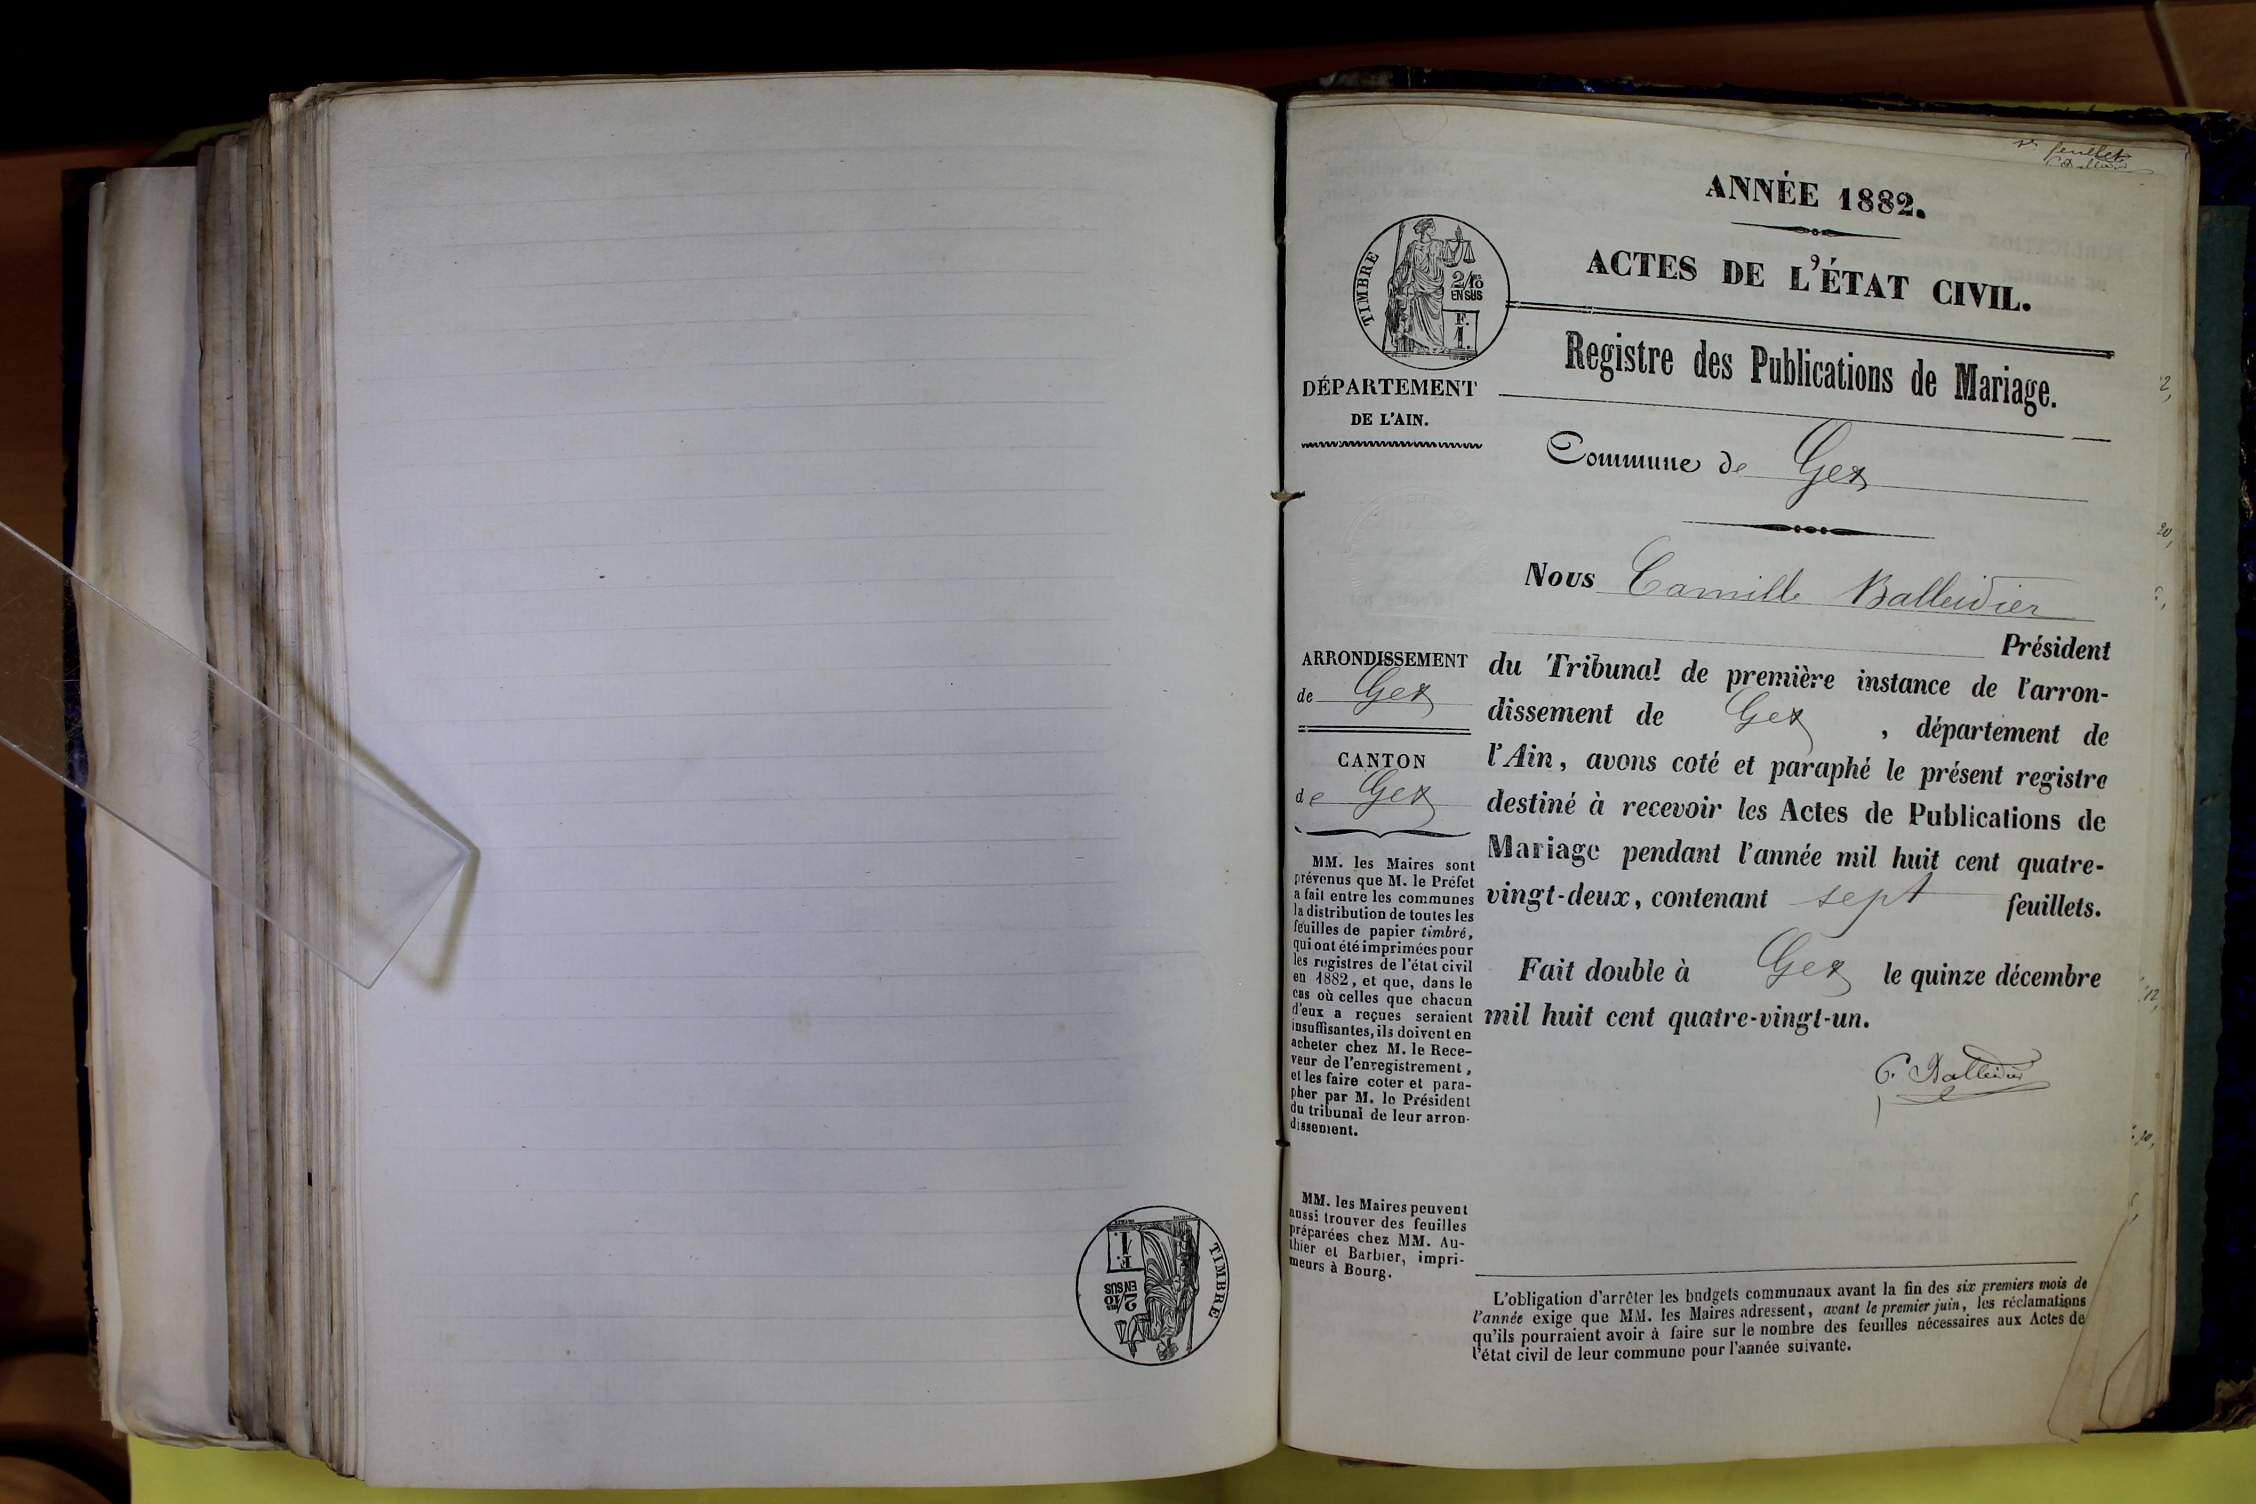 1er feuillet
C. Balleidier
ANNÉE 1882.
ACTES DE L'ÉTAT CIVIL.
TIMBRE
2/10 EN SUS
F. 1.
Registre des Publications de Mariage.
DÉPARTEMENT
DE L'AIN.
Commune de Gex
Nous Camille Balleidier
Président
du Tribunal de première instance de l'arron-
dissement de Gex, département de
l'Ain, avons coté et paraphé le présent registre
destiné à recevoir les Actes de Publications de
Mariage pendant l'année mil huit cent quatre-
vingt-deux, contenant sept feuillets.
Fait double à Gex le quinze décembre
mil huit cent quatre-vingt-un.
C. Balleidier
ARRONDISSEMENT
de Gex
CANTON
de Gex
MM. les Maires sont
prévenus que M. le Préfet
a fait entre les communes
la distribution de toutes les
feuilles de papier timbré,
qui ont été imprimées pour
les registres de l'état civil
en 1882, et que, dans le
cas où celles que chacun
d'eux a reçues seraient
insuffisantes, ils doivent en
acheter chez M. le Rece-
veur de l'enregistrement,
et les faire coter et para-
pher par M. le Président
du tribunal de leur arron-
dissement.
MM. les Maires peuvent
aussi trouver des feuilles
préparées chez MM. Au-
thier et Barbier, impri-
meurs à Bourg.
L'obligation d'arrêter les budgets communaux avant la fin des six premiers mois de
l'année exige que MM. les Maires adressent, avant le premier juin, les réclamations
qu'ils pourraient avoir à faire sur le nombre des feuilles nécessaires aux Actes de
l'état civil de leur commune pour l'année suivante.
TIMBRE
2/10 EN SUS
F. 1.